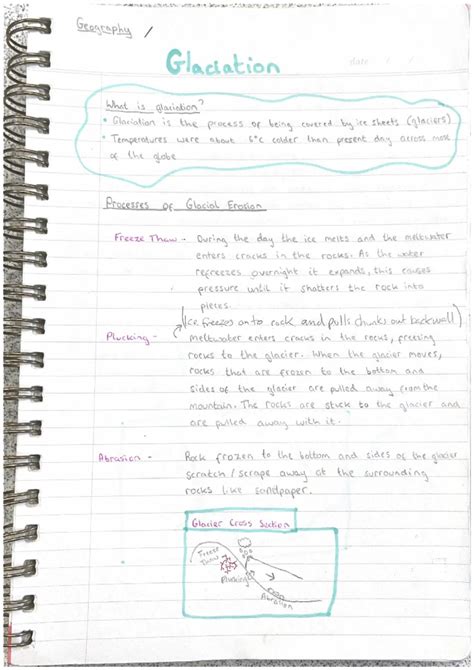 Geography /
Glaciation
date / /
What is glaciation?
• Glaciation is the process of being covered by ice sheets (glaciers)
• Temperatures were about 6°c colder than present day across most
of the globe
Processes of Glacial Erosion
Freeze Thaw - During the day the ice melts and the meltwater
enters cracks in the rocks. As the water
refreezes overnight it expands, this causes
pressure until it shatters the rock into
pieces.
(Ice freezes onto rock and pulls chunks out backwall)
Plucking - meltwater enters cracks in the rocks, freezing
rocks to the glacier. When the glacier moves,
rocks that are frozen to the bottom and
sides of the glacier are pulled away from the
mountain. The rocks are stuck to the glacier and
are pulled away with it.
Abrasion - Rock frozen to the bottom and sides of the glacier
scratch/scrape away at the surrounding
rocks like sandpaper.
Glacier Cross Section
Freeze
Thaw
Plucking
Abrasion